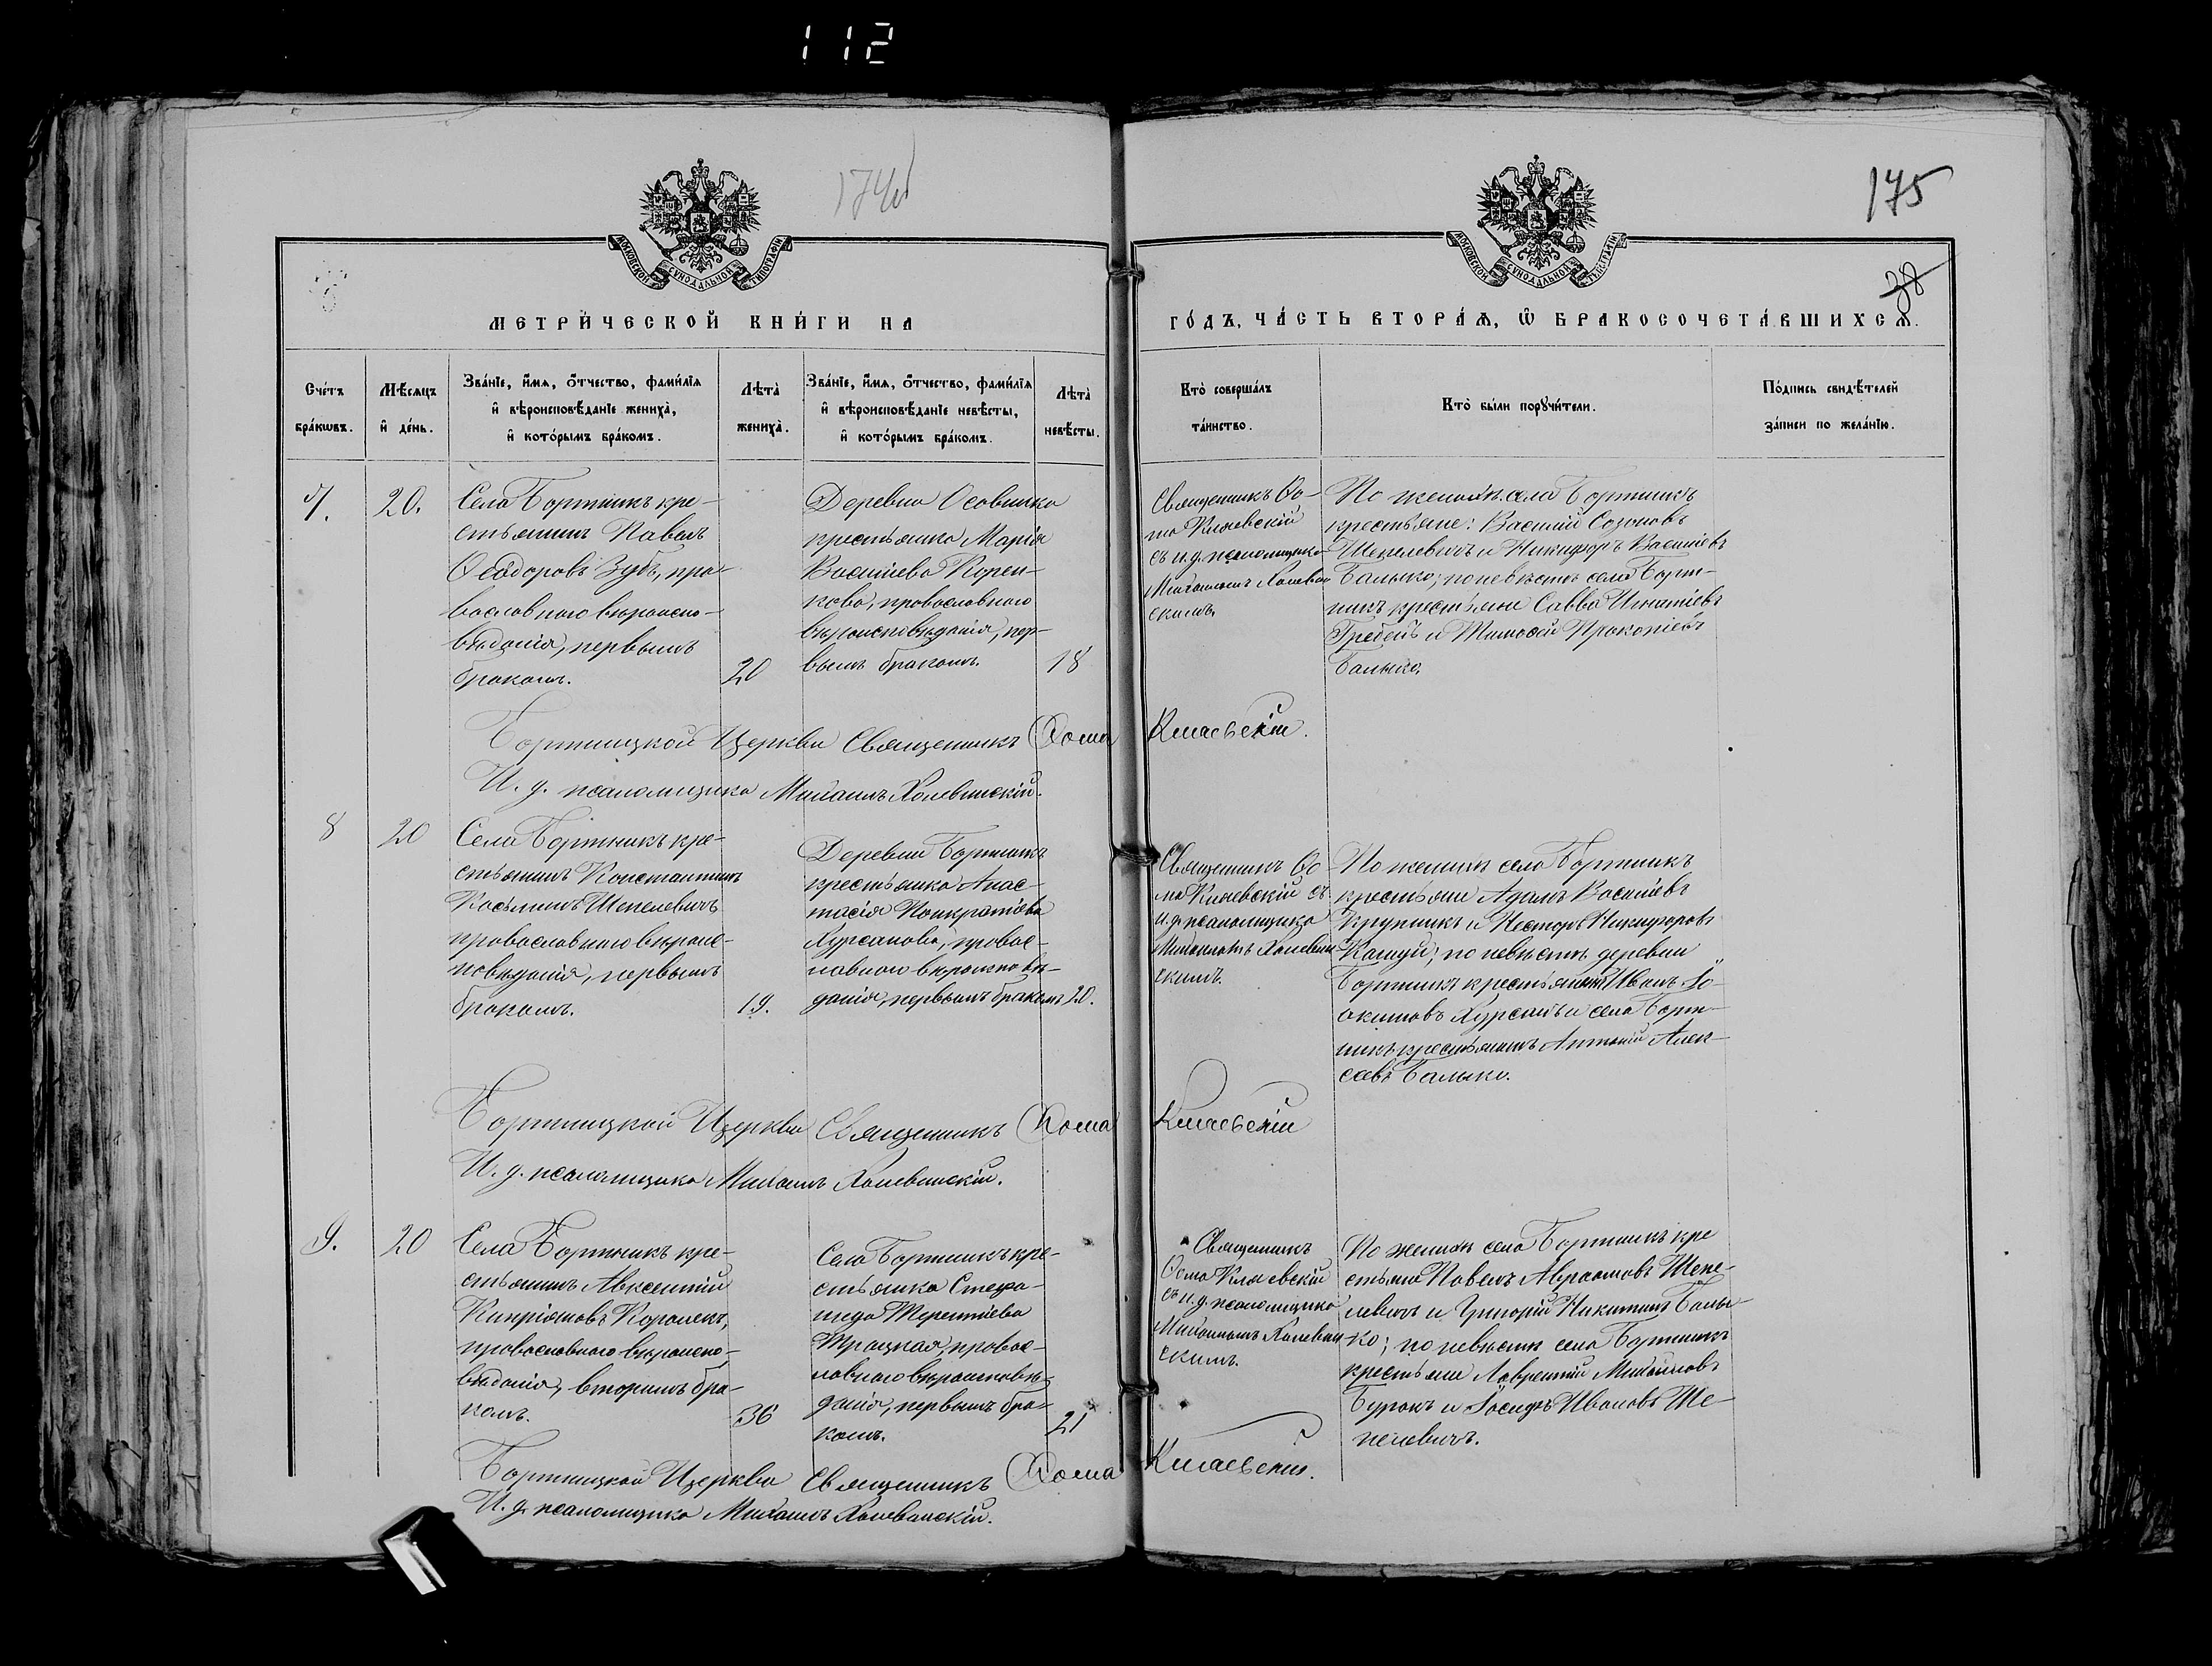 112
175
38
МОСКОВСКОЙ СѴНОДАЛЬНОЙ ТИПОГРАФІИ
МОСКОВСКОЙ СѴНОДАЛЬНОЙ ТИПОГРАФІИ
МЕТРИ́ЧЕСКОЙ КНИ́ГИ НА
ГО́ДЪ, ЧА́СТЬ ВТОРА́Ѧ, Ѡ БРАКОСОЧЕТА́ВШИХСѦ.
Сче́тъ бра́кѡвъ.
Мѣ́сѧцъ и҆ де́нь.
Зва́нїе, и҆́мѧ, ѻ҆́тчество, фами́лїѧ
и҆ вѣроисповѣ́данїе жениха̀,
и҆ кото́рымъ бра́комъ.
Лѣта̀ жениха̀.
Зва́нїе, и҆́мѧ, ѻ҆́тчество, фами́лїѧ
и҆ вѣроисповѣ́данїе невѣ́сты,
и҆ кото́рымъ бра́комъ.
Лѣта̀ невѣ́сты.
Кто̀ соверша́лъ та́инство.
Кто̀ бы́ли порꙋчи́тели.
По́дпись свидѣ́телей
за́писи по жела́нїю.
7.
20.
Села Бортникъ кре-
стьянинъ Павелъ
Ѳеодоровъ Зубъ, пра-
вославнаго вѣроиспо-
вѣданія, первымъ
бракомъ.
20
Деревни Осовника
крестьянка Марія
Васильева Корен-
кова, православнаго
вѣроисповѣданія, пер-
вымъ бракомъ.
18
Священникъ Ѳо-
ма Кмаевскій
съ и.д. псаломщика
Михаиломъ Холеван-
скимъ.
По женихѣ села Бортникъ
крестьяне: Василій Созоновъ
Шепелевичъ и Никифоръ Васильевъ
Балыко; по невѣстѣ села Борт-
никъ крестьяне Савва Игнатіевъ
Гребень и Тимоѳей Прокопіевъ
Балыко.
Бортницкой Церкви Священникъ Ѳома Кмаевскій.
И. д. псаломщика Михаилъ Холеванскій.
8
20
Села Бортникъ кре-
стьянинъ Константинъ
Косьминъ Шепелевичъ
православнаго вѣроис-
повѣданія, первымъ
бракомъ.
19.
Деревни Бортникъ
крестьянка Анас-
тасія Панкратіева
Хурсанова, правос-
лавнаго вѣроисповѣ-
данія, первымъ бракомъ
20.
Священникъ Ѳо-
ма Кмаевскій съ
и.д. псаломщика
Михаиломъ Холеван-
скимъ.
По женихѣ села Бортникъ
крестьяне Адамъ Васильевъ
Крупникъ и Несторъ Никифоровъ
по невѣстѣ деревни
Бортникъ крестьянинъ Иванъ Іо-
акимовъ Хурсанъ и села Борт-
никъ крестьянинъ Антоній Алек-
сѣевъ Балыко.
Бортницкой Церкви Священникъ Ѳома Кмаевскій
И. д. псаломщика Михаилъ Холеванскій.
9.
20
Села Бортникъ кре-
стьянинъ Авксентій
Кипріяновъ Королекъ,
православнаго вѣроиспо-
вѣданія, вторымъ бра-
комъ.
36
Села Бортникъ кре-
стьянка Стефа-
нида Терентіева
Троцкая, правос-
лавнаго вѣроисповѣ-
данія, первымъ бра-
комъ.
21
Священникъ
Ѳома Кмаевскій
съ и.д. псаломщика
Михаиломъ Холеван-
скимъ.
По женихѣ села Бортникъ кре
стьяне Павелъ Авраамовъ Шепе-
левичъ и Григорій Никитинъ Балы-
ко; по невѣстѣ села Бортникъ
крестьяне Лаврентій Михайловъ
Буракъ и Іосифъ Ивановъ Ше-
пелевичъ.
Бортницкой Церкви Священникъ Ѳома Кмаевскій.
И. д. псаломщика Михаилъ Холеванскій.